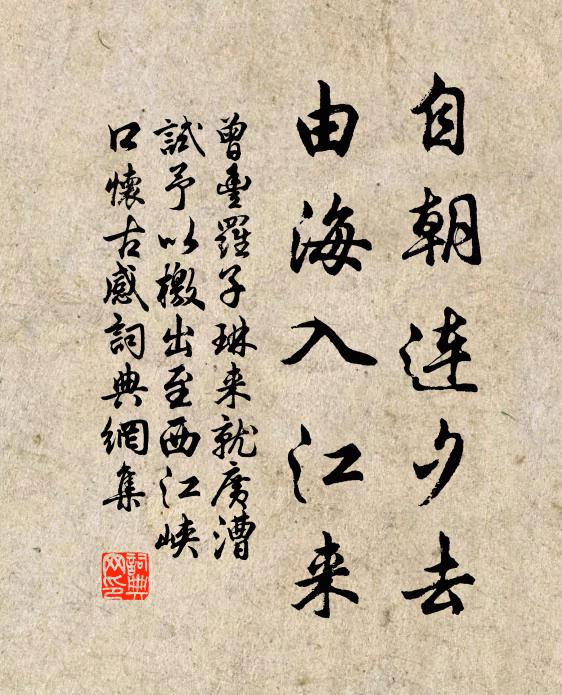 自朝连夕去
由海入江来
曾豊羅子琳来就廣漕
試予以檄出至西江峡
口懷古感詞典網集
詞典
网印